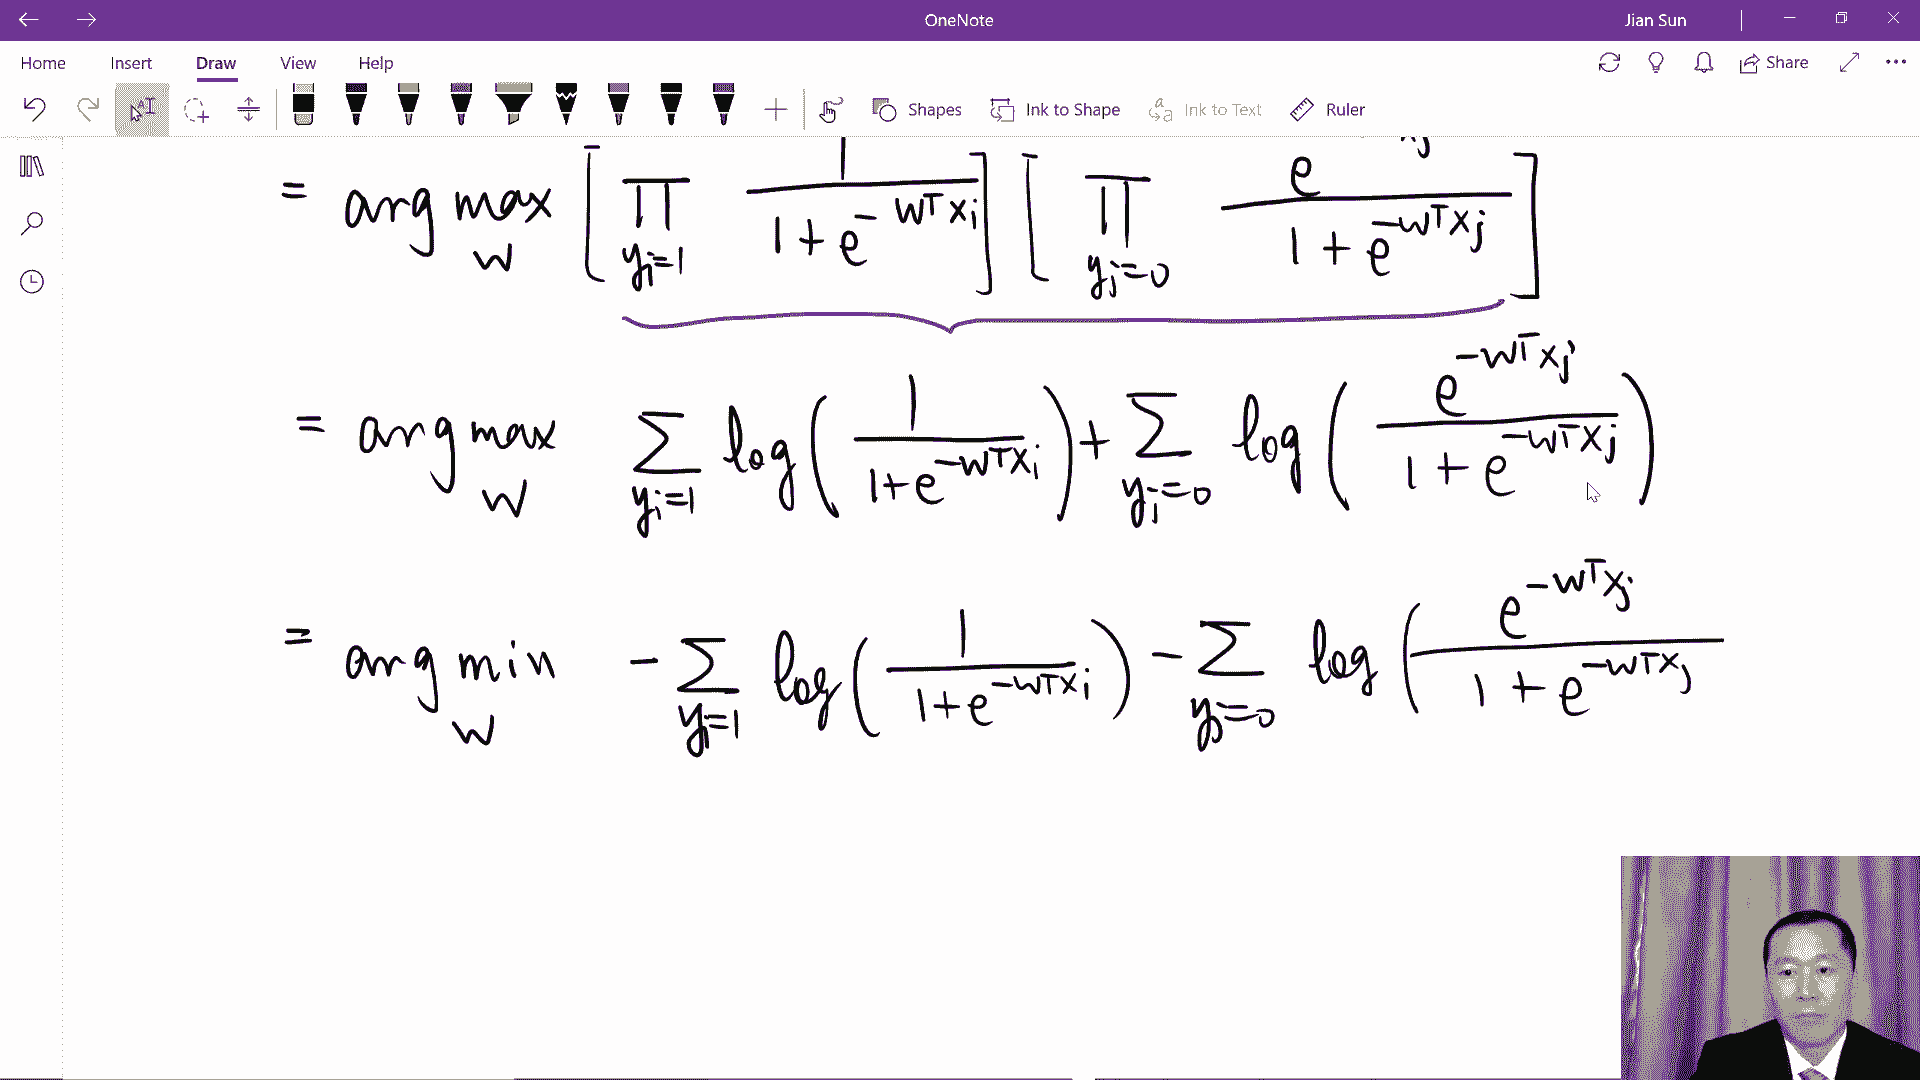 OneNote
Jian Sun
Home Insert Draw View Help
Share
Shapes Ink to Shape Ink to Text Ruler
= arg max_w [ ∏_{y_i=1} 1 / (1 + e^{-w^T x_i}) ] [ ∏_{y_j=0} e^{-w^T x_j} / (1 + e^{-w^T x_j}) ]
= arg max_w ∑_{y_i=1} log( 1 / (1+e^{-w^T x_i}) ) + ∑_{y_j=0} log( e^{-w^T x_j} / (1 + e^{-w^T x_j}) )
= arg min_w - ∑_{y_i=1} log( 1 / (1+e^{-w^T x_i}) ) - ∑_{y_j=0} log( e^{-w^T x_j} / (1 + e^{-w^T x_j})